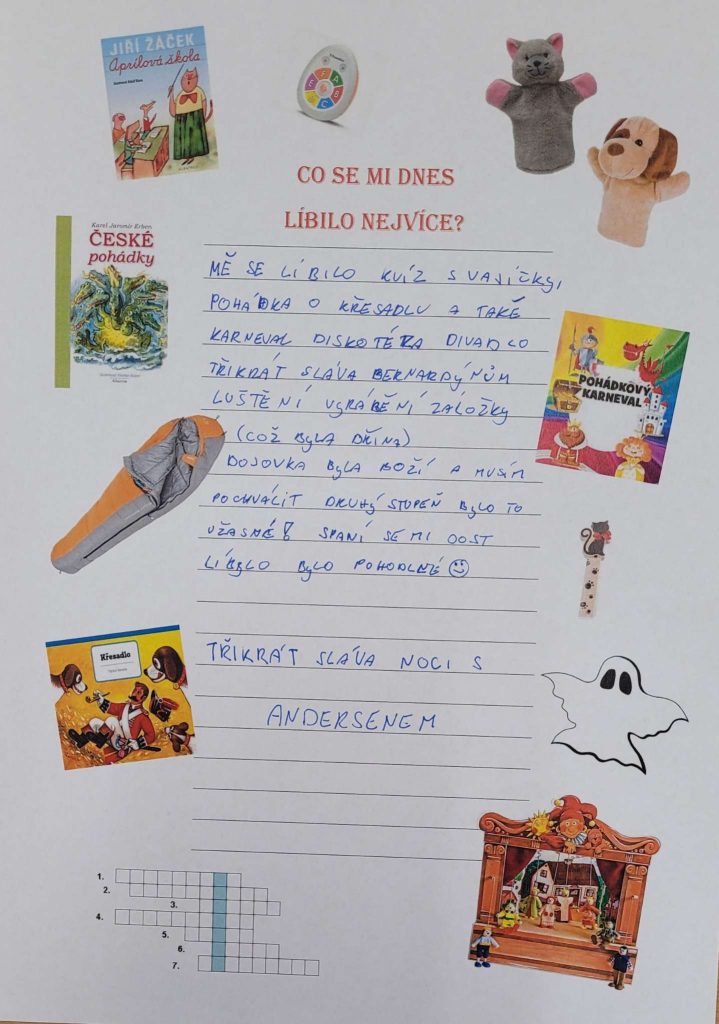 JIŘÍ ŽÁČEK
Aprílová škola
CO SE MI DNES
LÍBILO NEJVÍCE?
Karel Jaromír Erben
ČESKÉ
pohádky
MĚ SE LÍBILO KVÍZ S VAJÍČKY,
POHÁDKA O KŘESADLU A TAKÉ
KARNEVAL DISKOTÉKA DIVADLO
TŘIKRÁT SLÁVA BERNARDÝNŮM
LUŠTĚNÍ VYRÁBĚNÍ ZÁLOŽKY
(COŽ BYLA DŘINA)
BOJOVKA BYLA BOŽÍ A MUSÍM
POCHVÁLIT DRUHÝ STUPEŇ BYLO TO
UŽASNÉ! SPANÍ SE MI DOST
LÍBYLO BYLO POHODLNÉ ☺
POHÁDKOVÝ
KARNEVAL
Křesadlo
TŘIKRÁT SLÁVA NOCI S
ANDERSENEM
1.
2.
3.
4.
5.
6.
7.